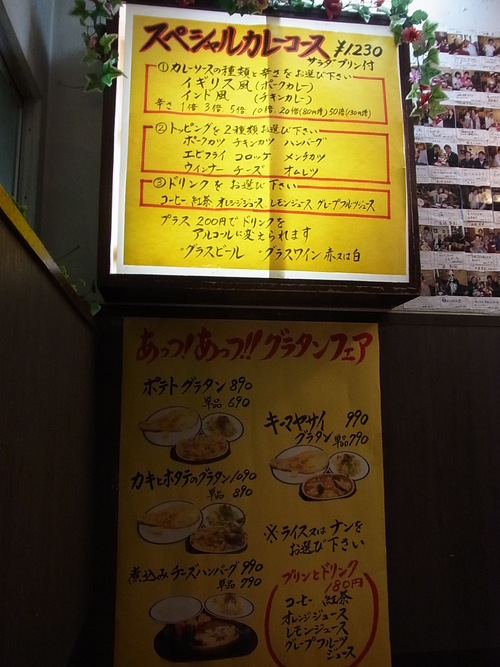 スペシャルカレーコース ¥1230
サラダプリン付
①カレーソースの種類と辛さをお選び下さい
イギリス風(ポークカレー)
インド風(チキンカレー)
辛さ 1倍 3倍 5倍 10倍 20倍(80円増) 50倍(130円増)
②トッピングを2種類お選び下さい
ポークカツ チキンカツ ハンバーグ
エビフライ コロッケ メンチカツ
ウインナー チーズ オムレツ
③ドリンクをお選び下さい
コーヒー 紅茶 オレンジジュース レモンジュース グレープフルーツジュース
プラス200円でドリンクを
アルコールに変えられます
・グラスビール ・グラスワイン赤又は白
あっつ!あっつ!!グラタンフェア
ポテトグラタン 890
単品 690
キーマヤサイ 990
グラタン 単品 790
カキとホタテのグラタン 1090
単品 890
※ライス又はナンを
お選び下さい
煮込みチーズハンバーグ 990
単品 790
プリンとドリンク
180円
コーヒー 紅茶
オレンジジュース
レモンジュース
グレープフルーツ
ジュース